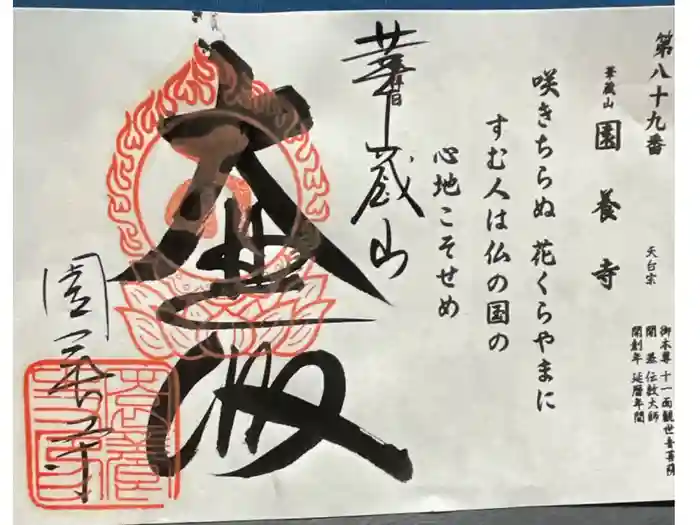 第八十九番
華蔵山
園養寺
天台宗
御本尊 十一面観世音菩薩
開基 伝教大師
開創年 延暦年間
咲きちらぬ 花くらやまに
すむ人は仏の国の
心地こそせめ
華蔵山
大悲殿
園養寺